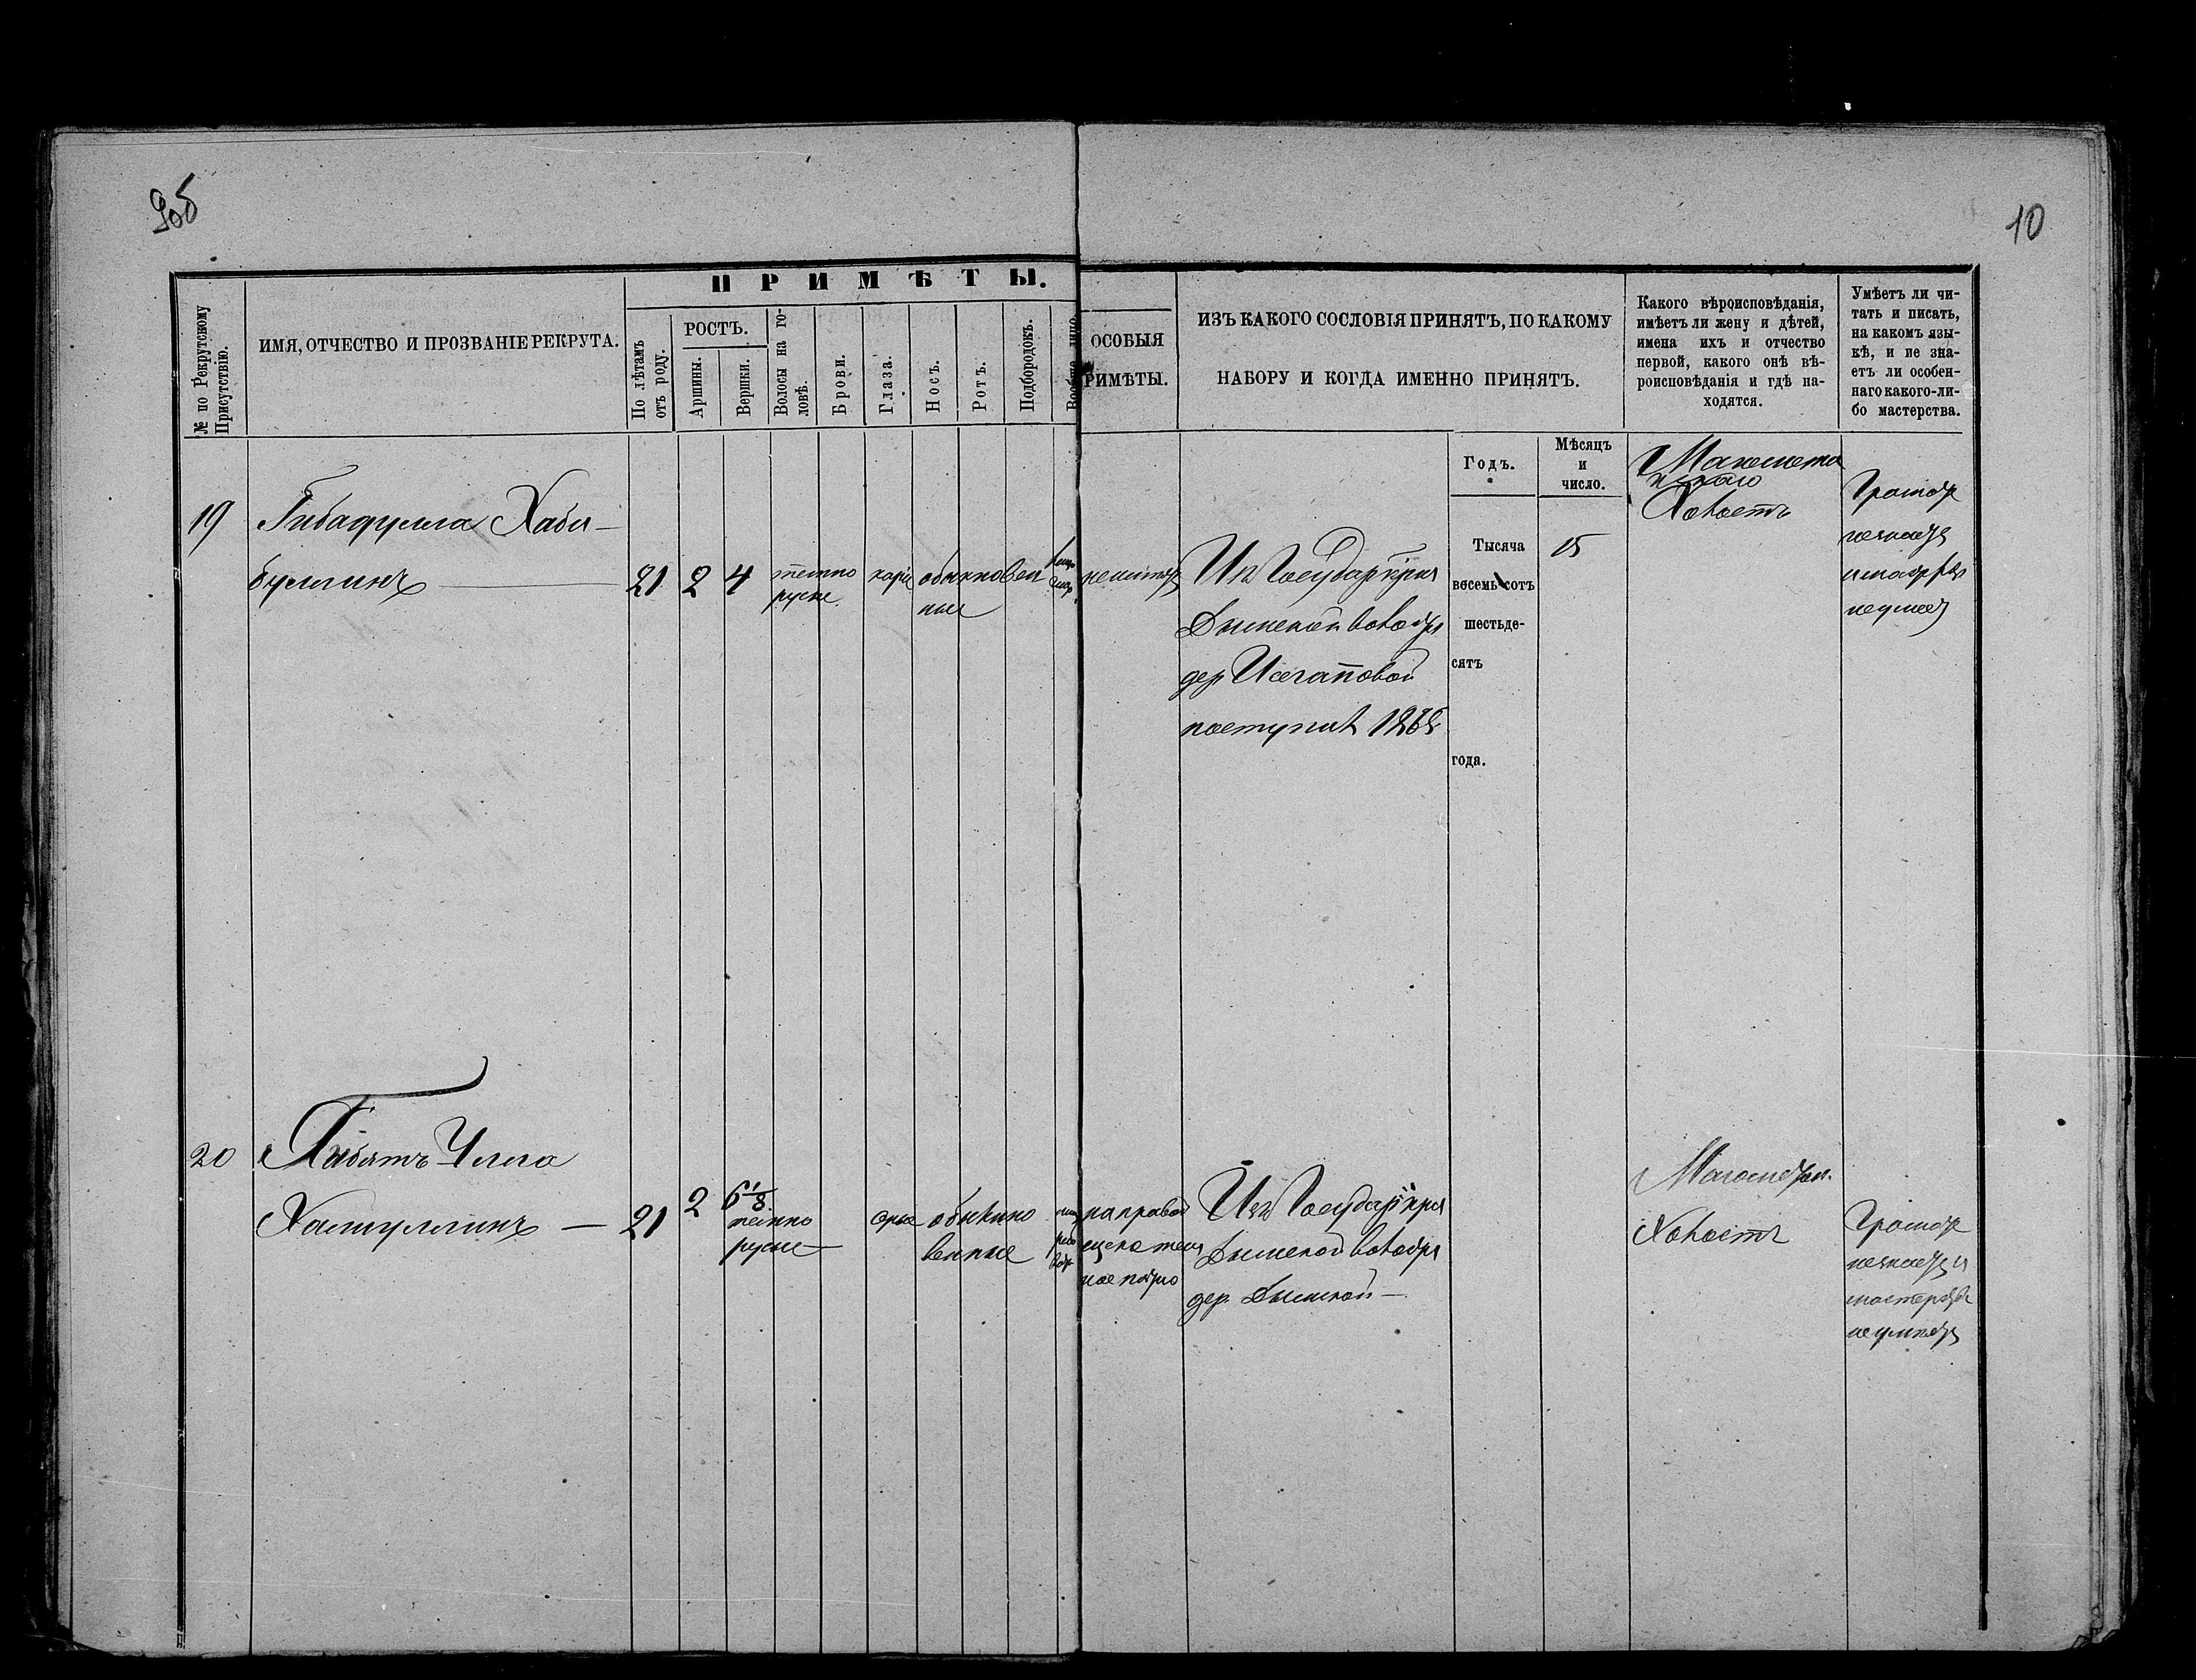 9об
10
ПРИМѢТЫ.
№ по Рекрутскому Присутствію.
ИМЯ, ОТЧЕСТВО И ПРОЗВАНІЕ РЕКРУТА.
По лѣтамъ отъ роду.
РОСТЪ.
Аршины.
Вершки.
Волосы на головѣ.
Брови.
Глаза.
Носъ.
Ротъ.
Подбородокъ.
ОСОБЫЯ
РИМѢТЫ.
ИЗЪ КАКОГО СОСЛОВІЯ ПРИНЯТЪ, ПО КАКОМУ
НАБОРУ И КОГДА ИМЕННО ПРИНЯТЪ.
Какого вѣроисповѣданія,
имѣетъ ли жену и дѣтей,
имена ихъ и отчество
первой, какого онѣ вѣ-
роисповѣданія и гдѣ на-
ходятся.
Умѣетъ ли чи-
тать и писать,
на какомъ язы-
кѣ, и не зна-
етъ ли особен-
наго какого-ли-
бо мастерства.
Годъ.
Мѣсяцъ
и
число.
19
Гибадулла Хаби-
буллинъ
21
2
4
темно
русые
каріе
обыкновен
ные
неимѣетъ
Изъ Государ. кре
Дымской волости
дер Исергаповой
поступилъ 1868
Тысяча
восемьсотъ
шестьде-
сятъ
года.
15
Магомета
нскаго
Холостъ
Грамотѣ
незнаетъ
неумѣетъ
20
Хибятъ Улла
Хамуллинъ —
21
2
6 1/8
темно
русые
серые
обыкно
венные
на правой
щеке темн
ное пятно
Изъ Государ. кре
Дымской волости
дер. Дымской —
Магометан.
Холостъ
Грамотѣ
незнаетъ и
мастерства
неумѣетъ